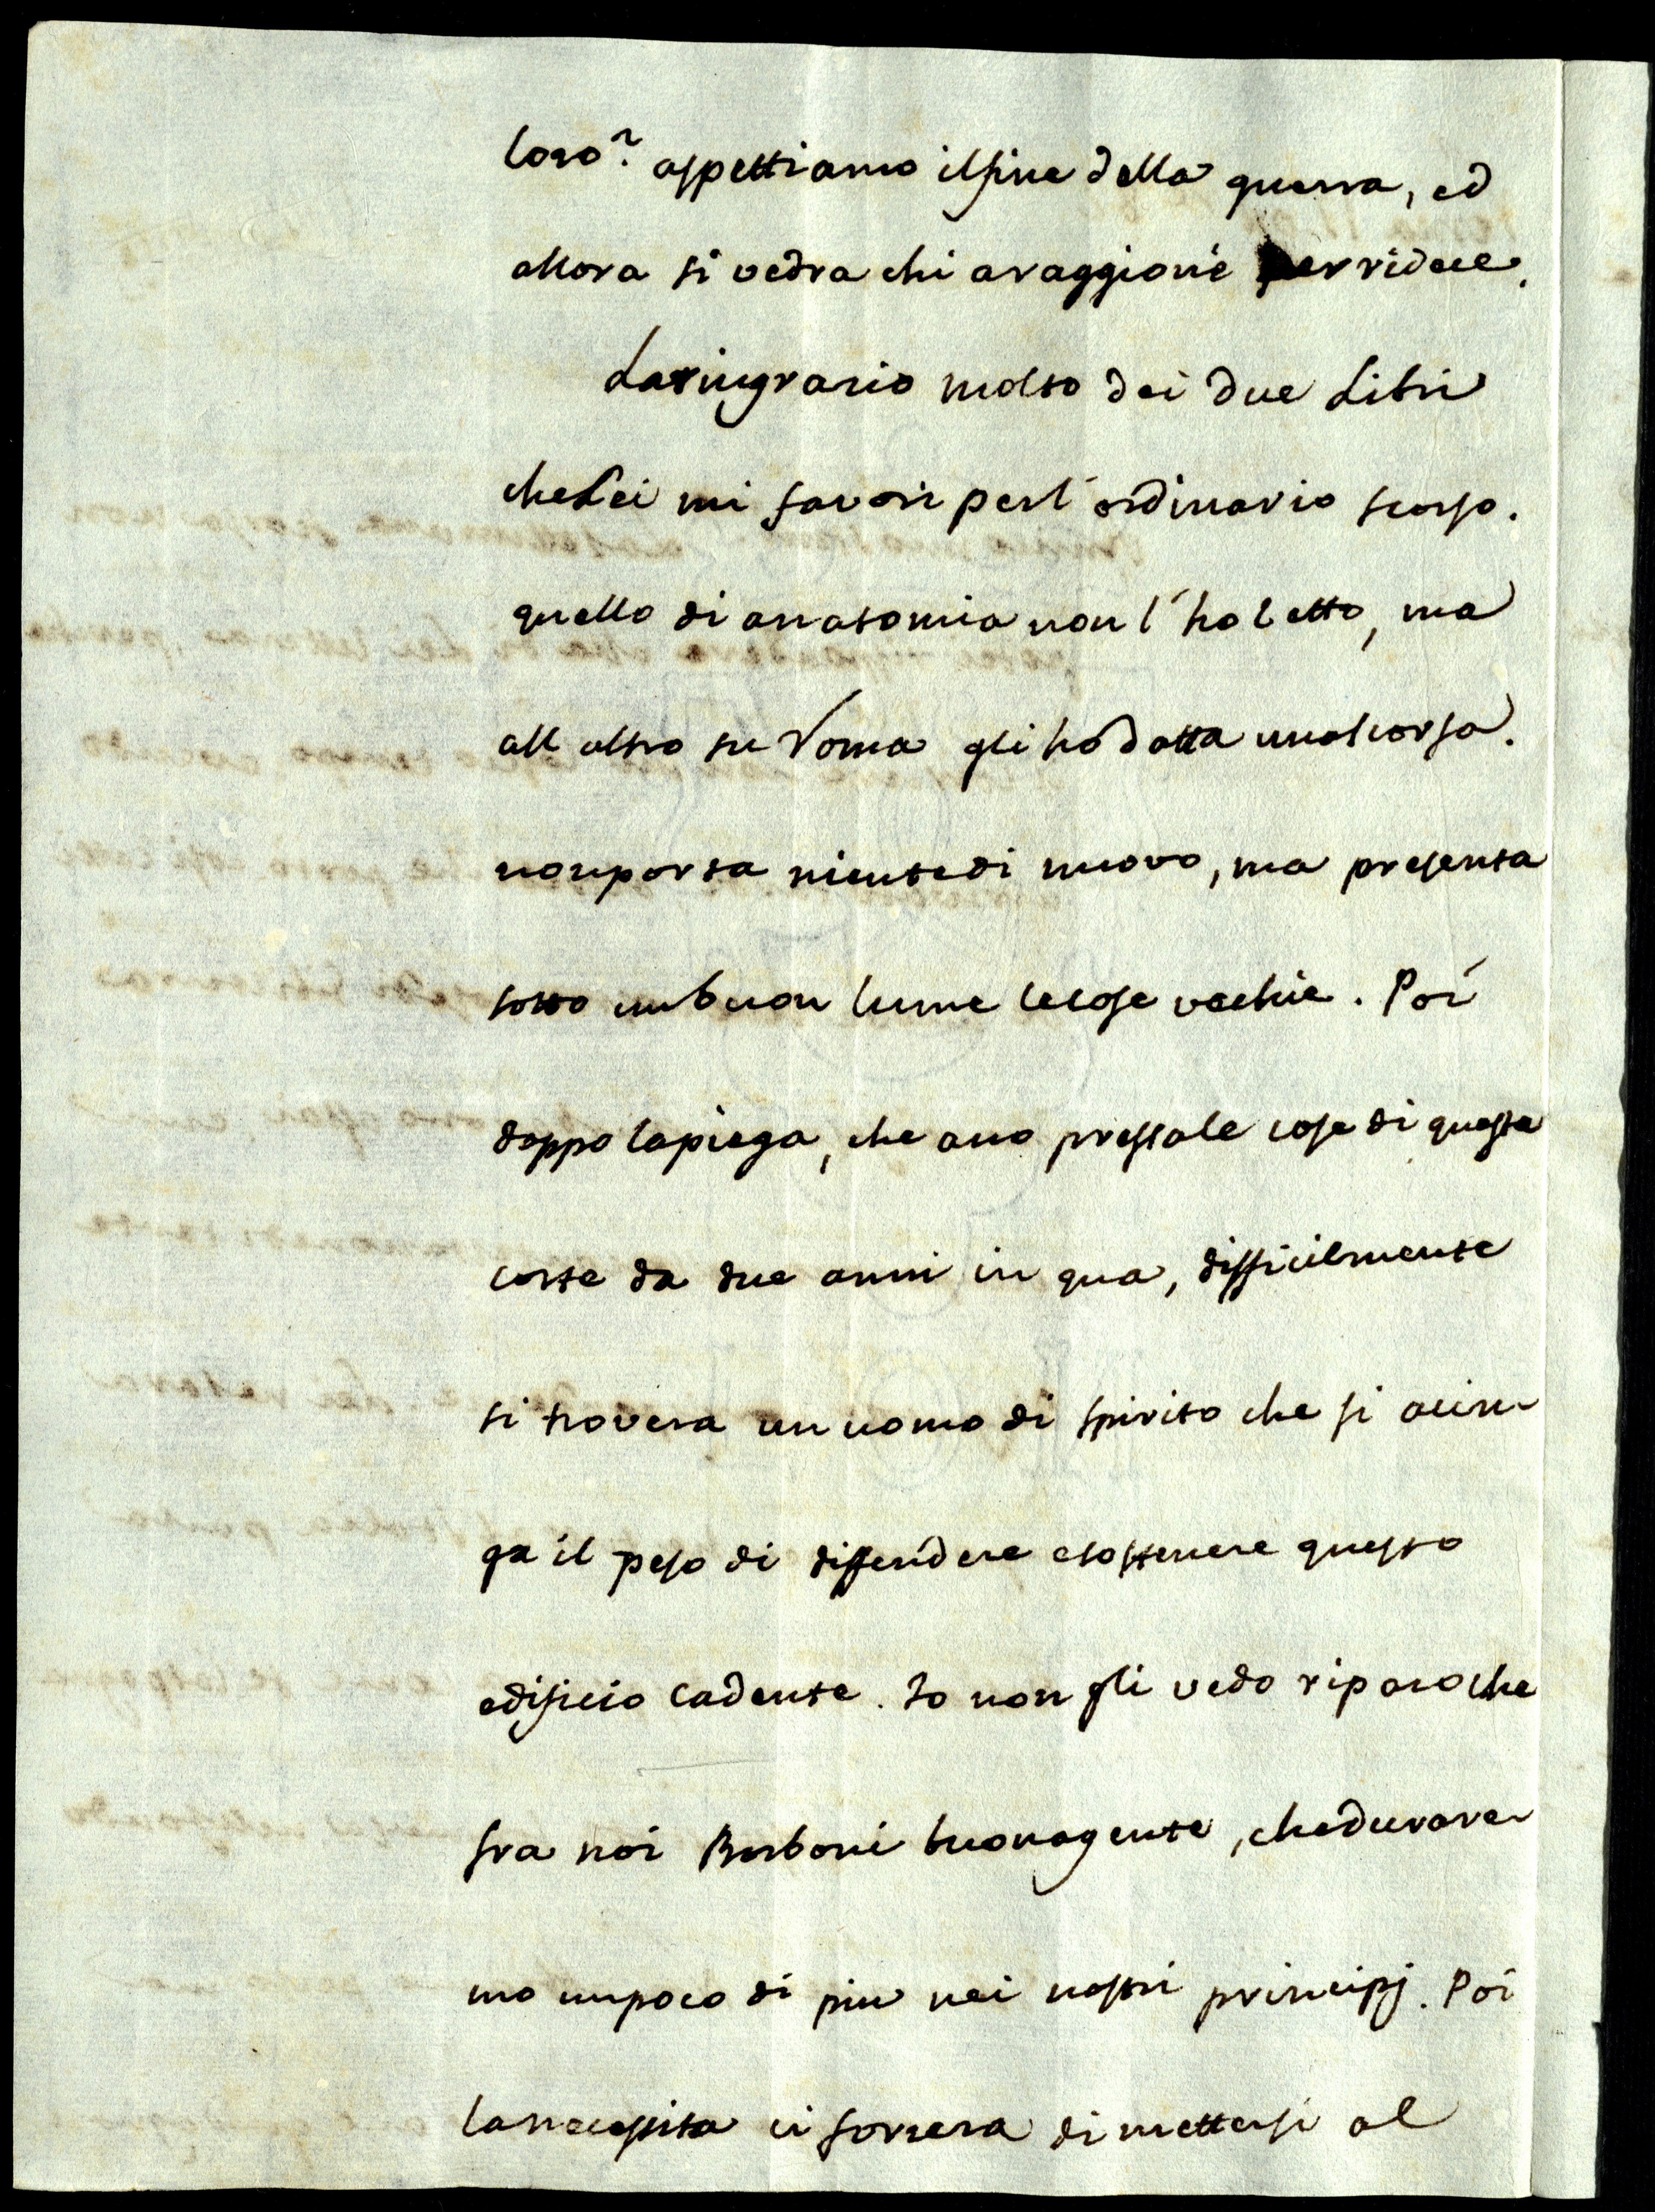 loro? aspettiamo il fine della guerra, ed
allora si vedra chi a raggione per ridere.
La ringrazio molto dei due Libri
che Lei mi favori per l'ordinario scorso.
quello di anatomia non l'ho letto, ma
all altro su Roma gli hó datta una scorsa.
non porta niente di nuovo, ma presenta
sotto un buon lume le cose vechie. Poi
doppo la piega, che ano pressa le cose di questa
corte da due anni in qua, difficilmente
si trovera un uomo di spirito che si acin-
ga il peso di diffendere e sostenere questo
edificio cadente. Io non gli vedo riparo che
fra noi Borboni buona gente, che durare-
mo un poco di piu nei nostri principj. Poi
la necessita ci forzera di mettersi al